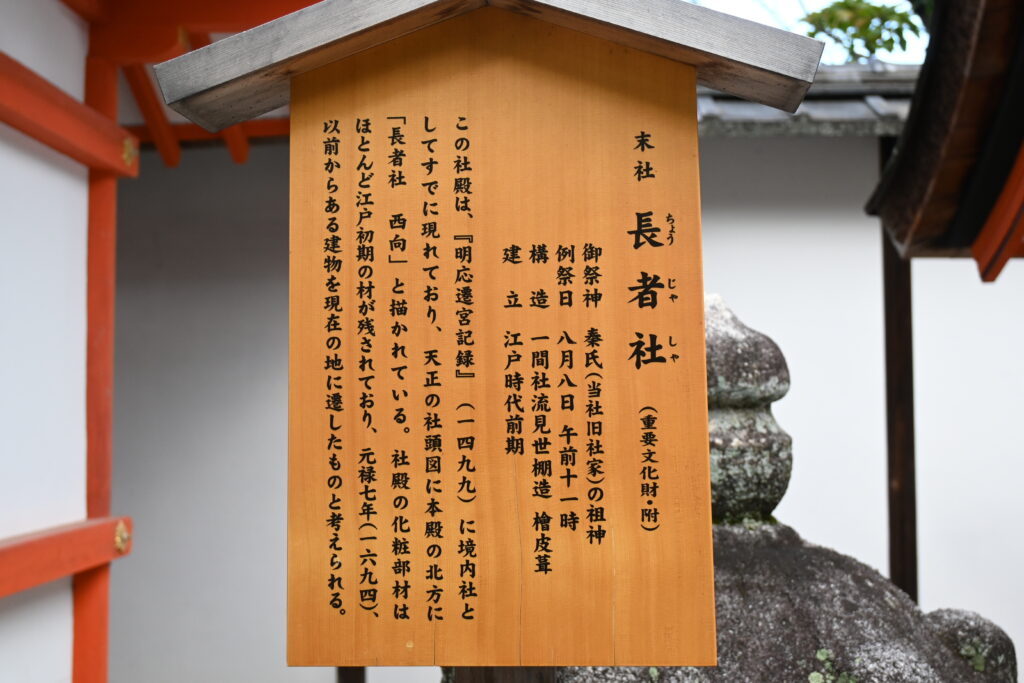 末社 長者社 (重要文化財・附)
ちょう じゃ しゃ
御祭神 秦氏(当社旧社家)の祖神
例祭日 八月八日 午前十一時
構造 一間社流見世棚造 檜皮葺
建立 江戸時代前期
この社殿は、『明応遷宮記録』(一四九九)に境内社と
してすでに現れており、天正の社頭図に本殿の北方に
「長者社 西向」と描かれている。社殿の化粧部材は
ほとんど江戸初期の材が残されており、元禄七年(一六九四)、
以前からある建物を現在の地に遷したものと考えられる。